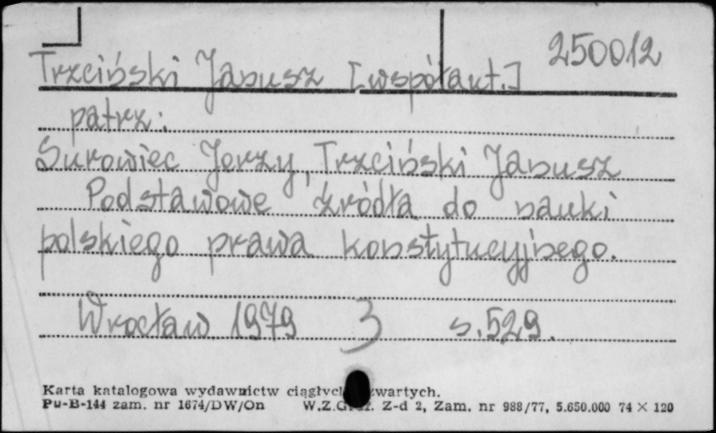 250012
Trzciński Janusz [współaut.]
patrz:
Surowiec Jerzy, Trzciński Janusz
Podstawowe źródła do nauki
polskiego prawa konstytucyjnego.
Wrocław 1979 3 s. 529.
Karta katalogowa wydawnictw zwartych.
Pu-B-144 zam. nr 1674/DW/On Z-d 2, Zam. nr 988/77, 5.650.000 74 × 120